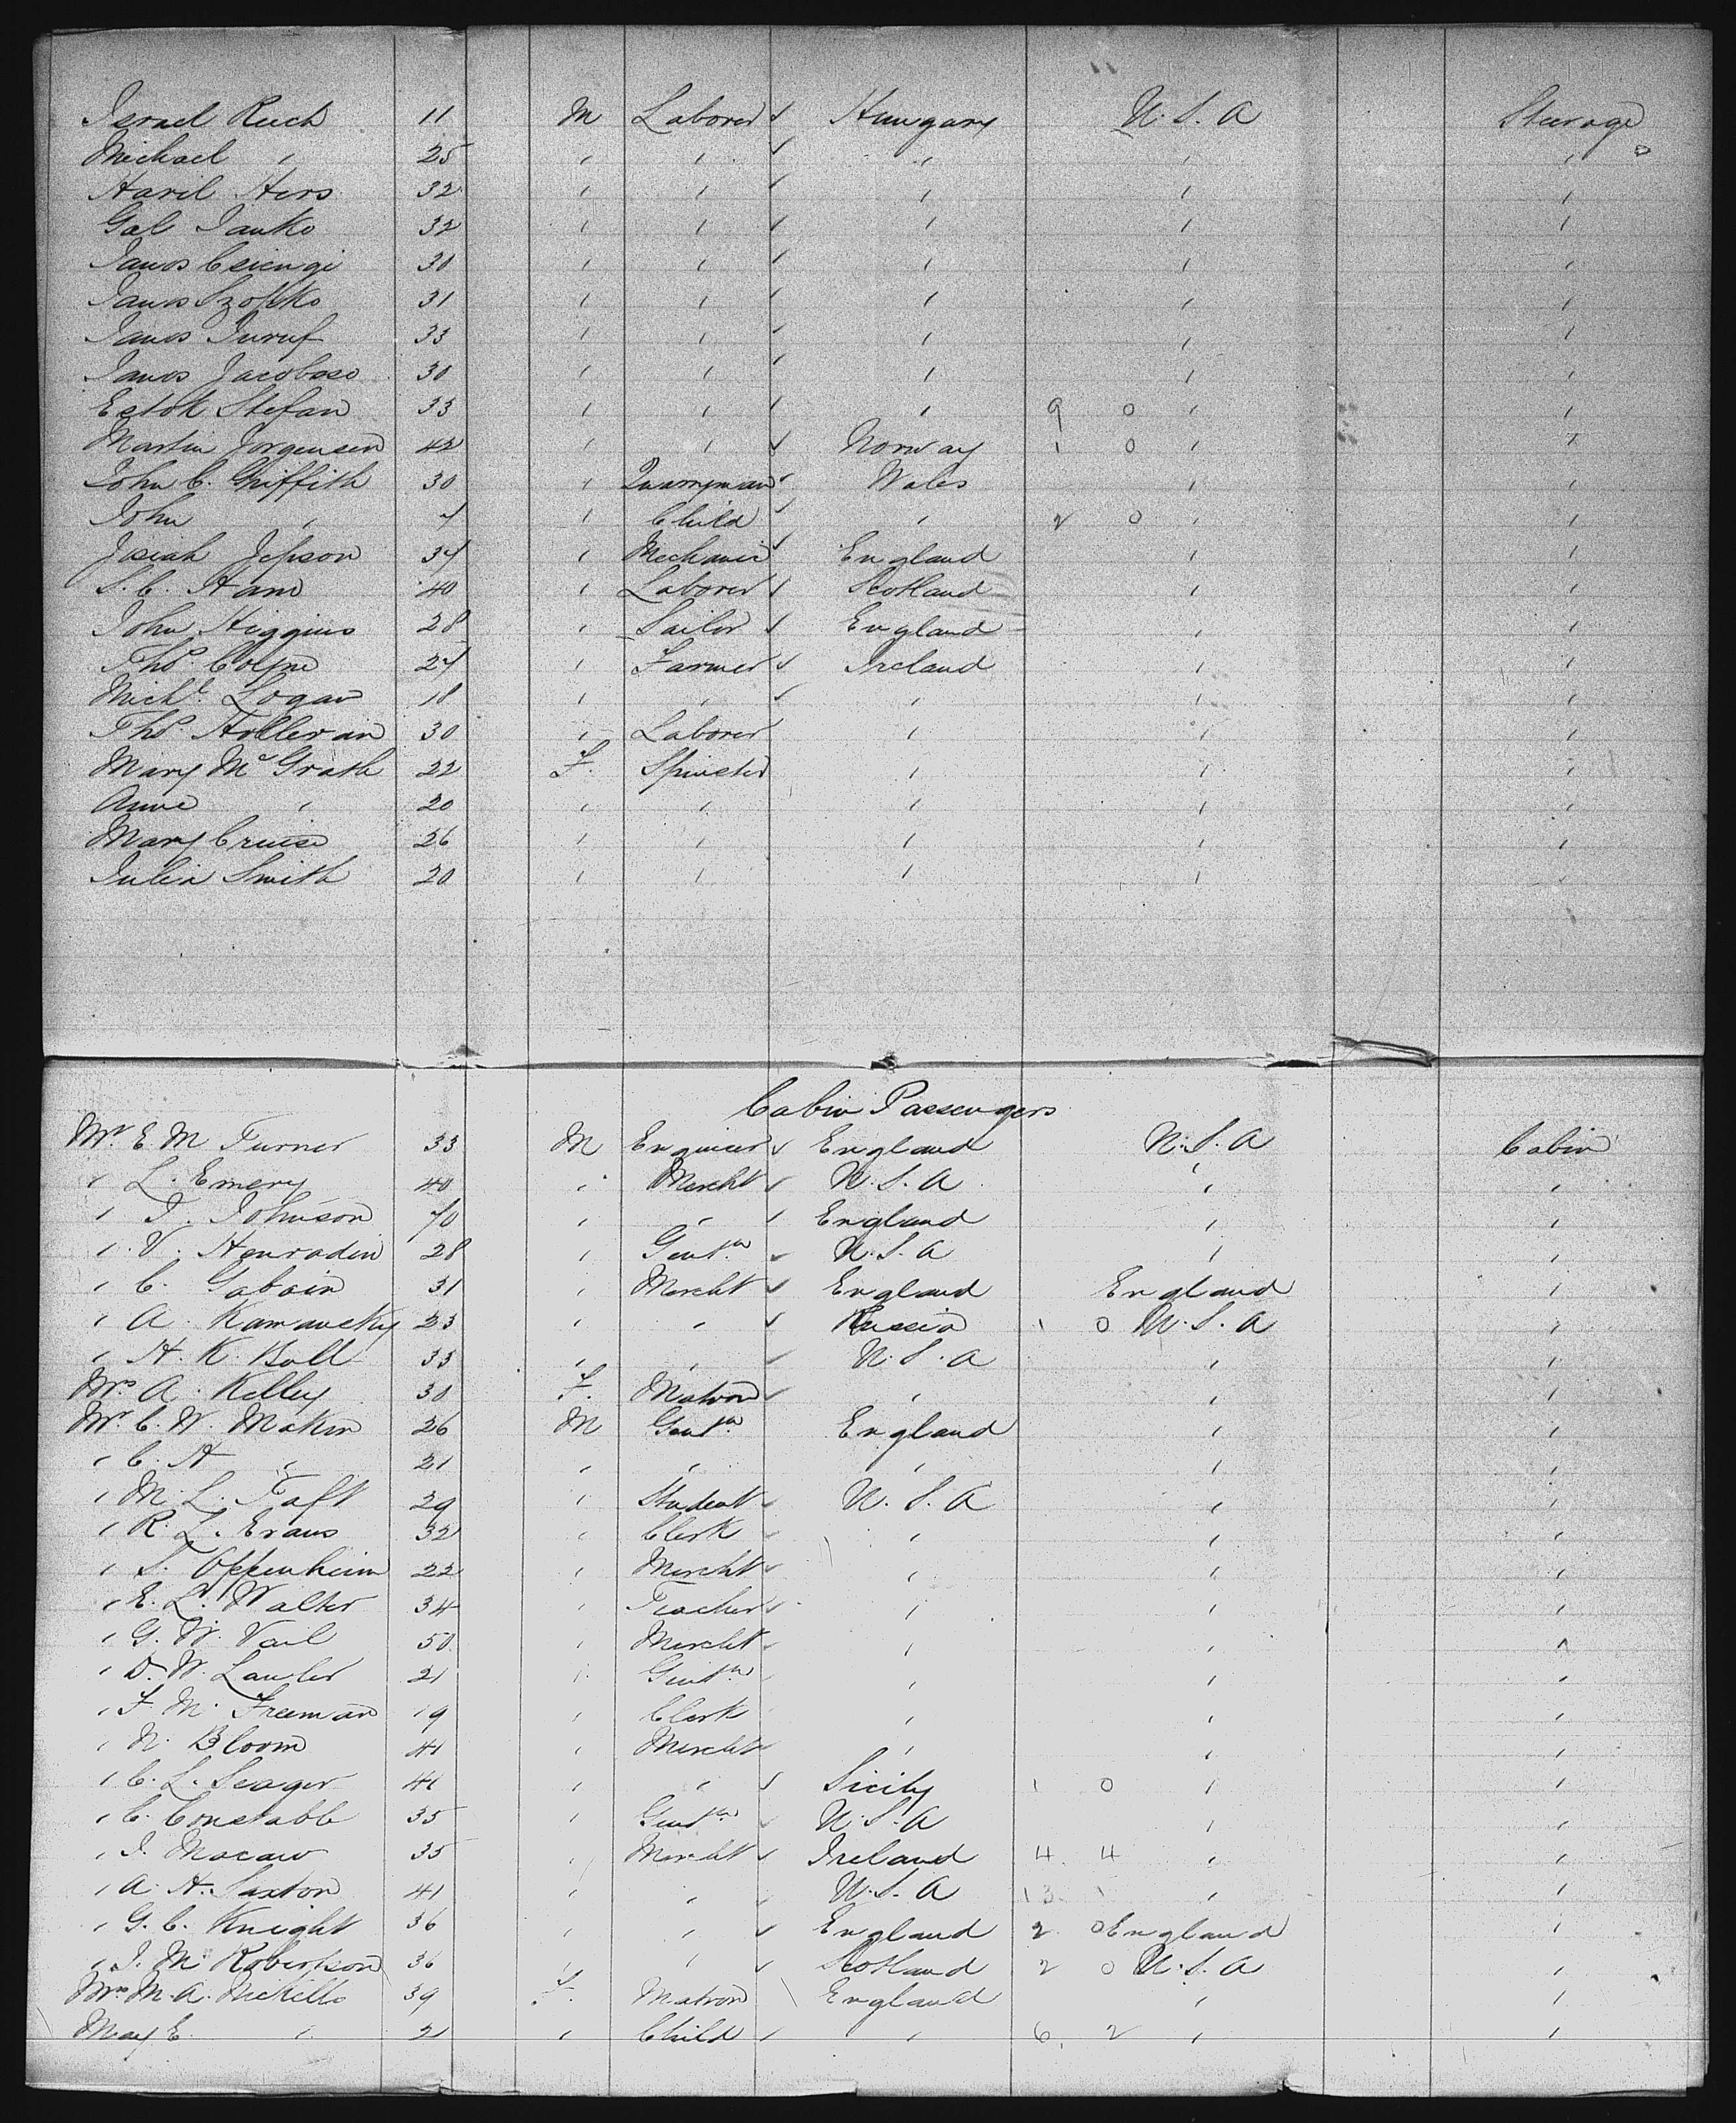 Israel Reich 11 M Laborer ✓ Hungary U.S.A Steerage
Michael " 25 " " ✓ " " "
Havil Hers 32 " " ✓ " " "
Gal Janko 32 " " ✓ " " "
Janos Csicngi 30 " " ✓ " " "
Janos Szopko 31 " " ✓ " " "
Janos 33 " " ✓ " " "
Janos 30 " " ✓ " " "
Estok Stefan 33 " " ✓ " 9 0 " "
Martin Jorgensen 42 " " ✓ Norway 1 0 " "
John C. Griffith 30 " Quarryman ✓ Wales " "
John " 7 " Child ✓ " 2 0 " "
Josiah Jepson 37 " Mechanic ✓ England " "
S. C. Ham 40 " Laborer ✓ Scotland " "
John Higgins 28 " Sailor ✓ England " "
Thos. Coyne 27 " Farmer ✓ Ireland " "
Michl. Logan 18 " " ✓ " " "
Thos. Holleran 30 " Laborer " " "
Mary McGrath 22 F. Spinster " " "
Anne " 20 " " " " "
Mary Cruise 26 " " " " "
Julia Smith 20 " " " " "
Cabin Passengers
Mr E M Turner 33 M Engineer ✓ England U.S.A Cabin
" L. Emery 40 " Mercht ✓ U.S.A " "
" J. Johnson 70 " " ✓ England " "
" V. Henrodin 28 " Gentn ✓ U.S.A " "
" C. Gabain 31 " Mercht ✓ England England "
" A. Kamancky 23 " " ✓ Russia 1 0 U.S.A "
" H. K. Ball 33 " " ✓ U.S.A " "
Mrs A. Kelley 30 F. Matron ✓ " " "
Mr C. W. Makin 26 M Gentn England " "
" C. H " 21 " " " " "
" M. L. Taft 29 " Student ✓ U.S.A " "
" R. L. Evans 32 " Clerk ✓ " " "
" S. Oppenheim 22 " Mercht ✓ " " "
" E. L. Walter 34 " Teacher ✓ " " "
" G. W. Vail 50 " Mercht ✓ " " "
" D. W. Lawler 21 " Gentn " " "
" F. M. Freeman 19 " Clerk " " "
" N. Bloom 41 " Mercht " " "
" C. L. Seager 41 " " ✓ Sicily 1 0 " "
" C. Constable 35 " Gentn ✓ U.S.A " "
" J. Macaw 35 " Mercht ✓ Ireland 4 4 " "
" A. H. Saxton 41 " " ✓ U.S.A 13 " "
" G. C. Knight 36 " " ✓ England 2 0 England "
" J. M. Robertson 36 " " ✓ Scotland 2 0 U.S.A "
Mrs M. A. Nickells 39 F. Matron England " "
May E. " 2 " Child " " 6 2 " "